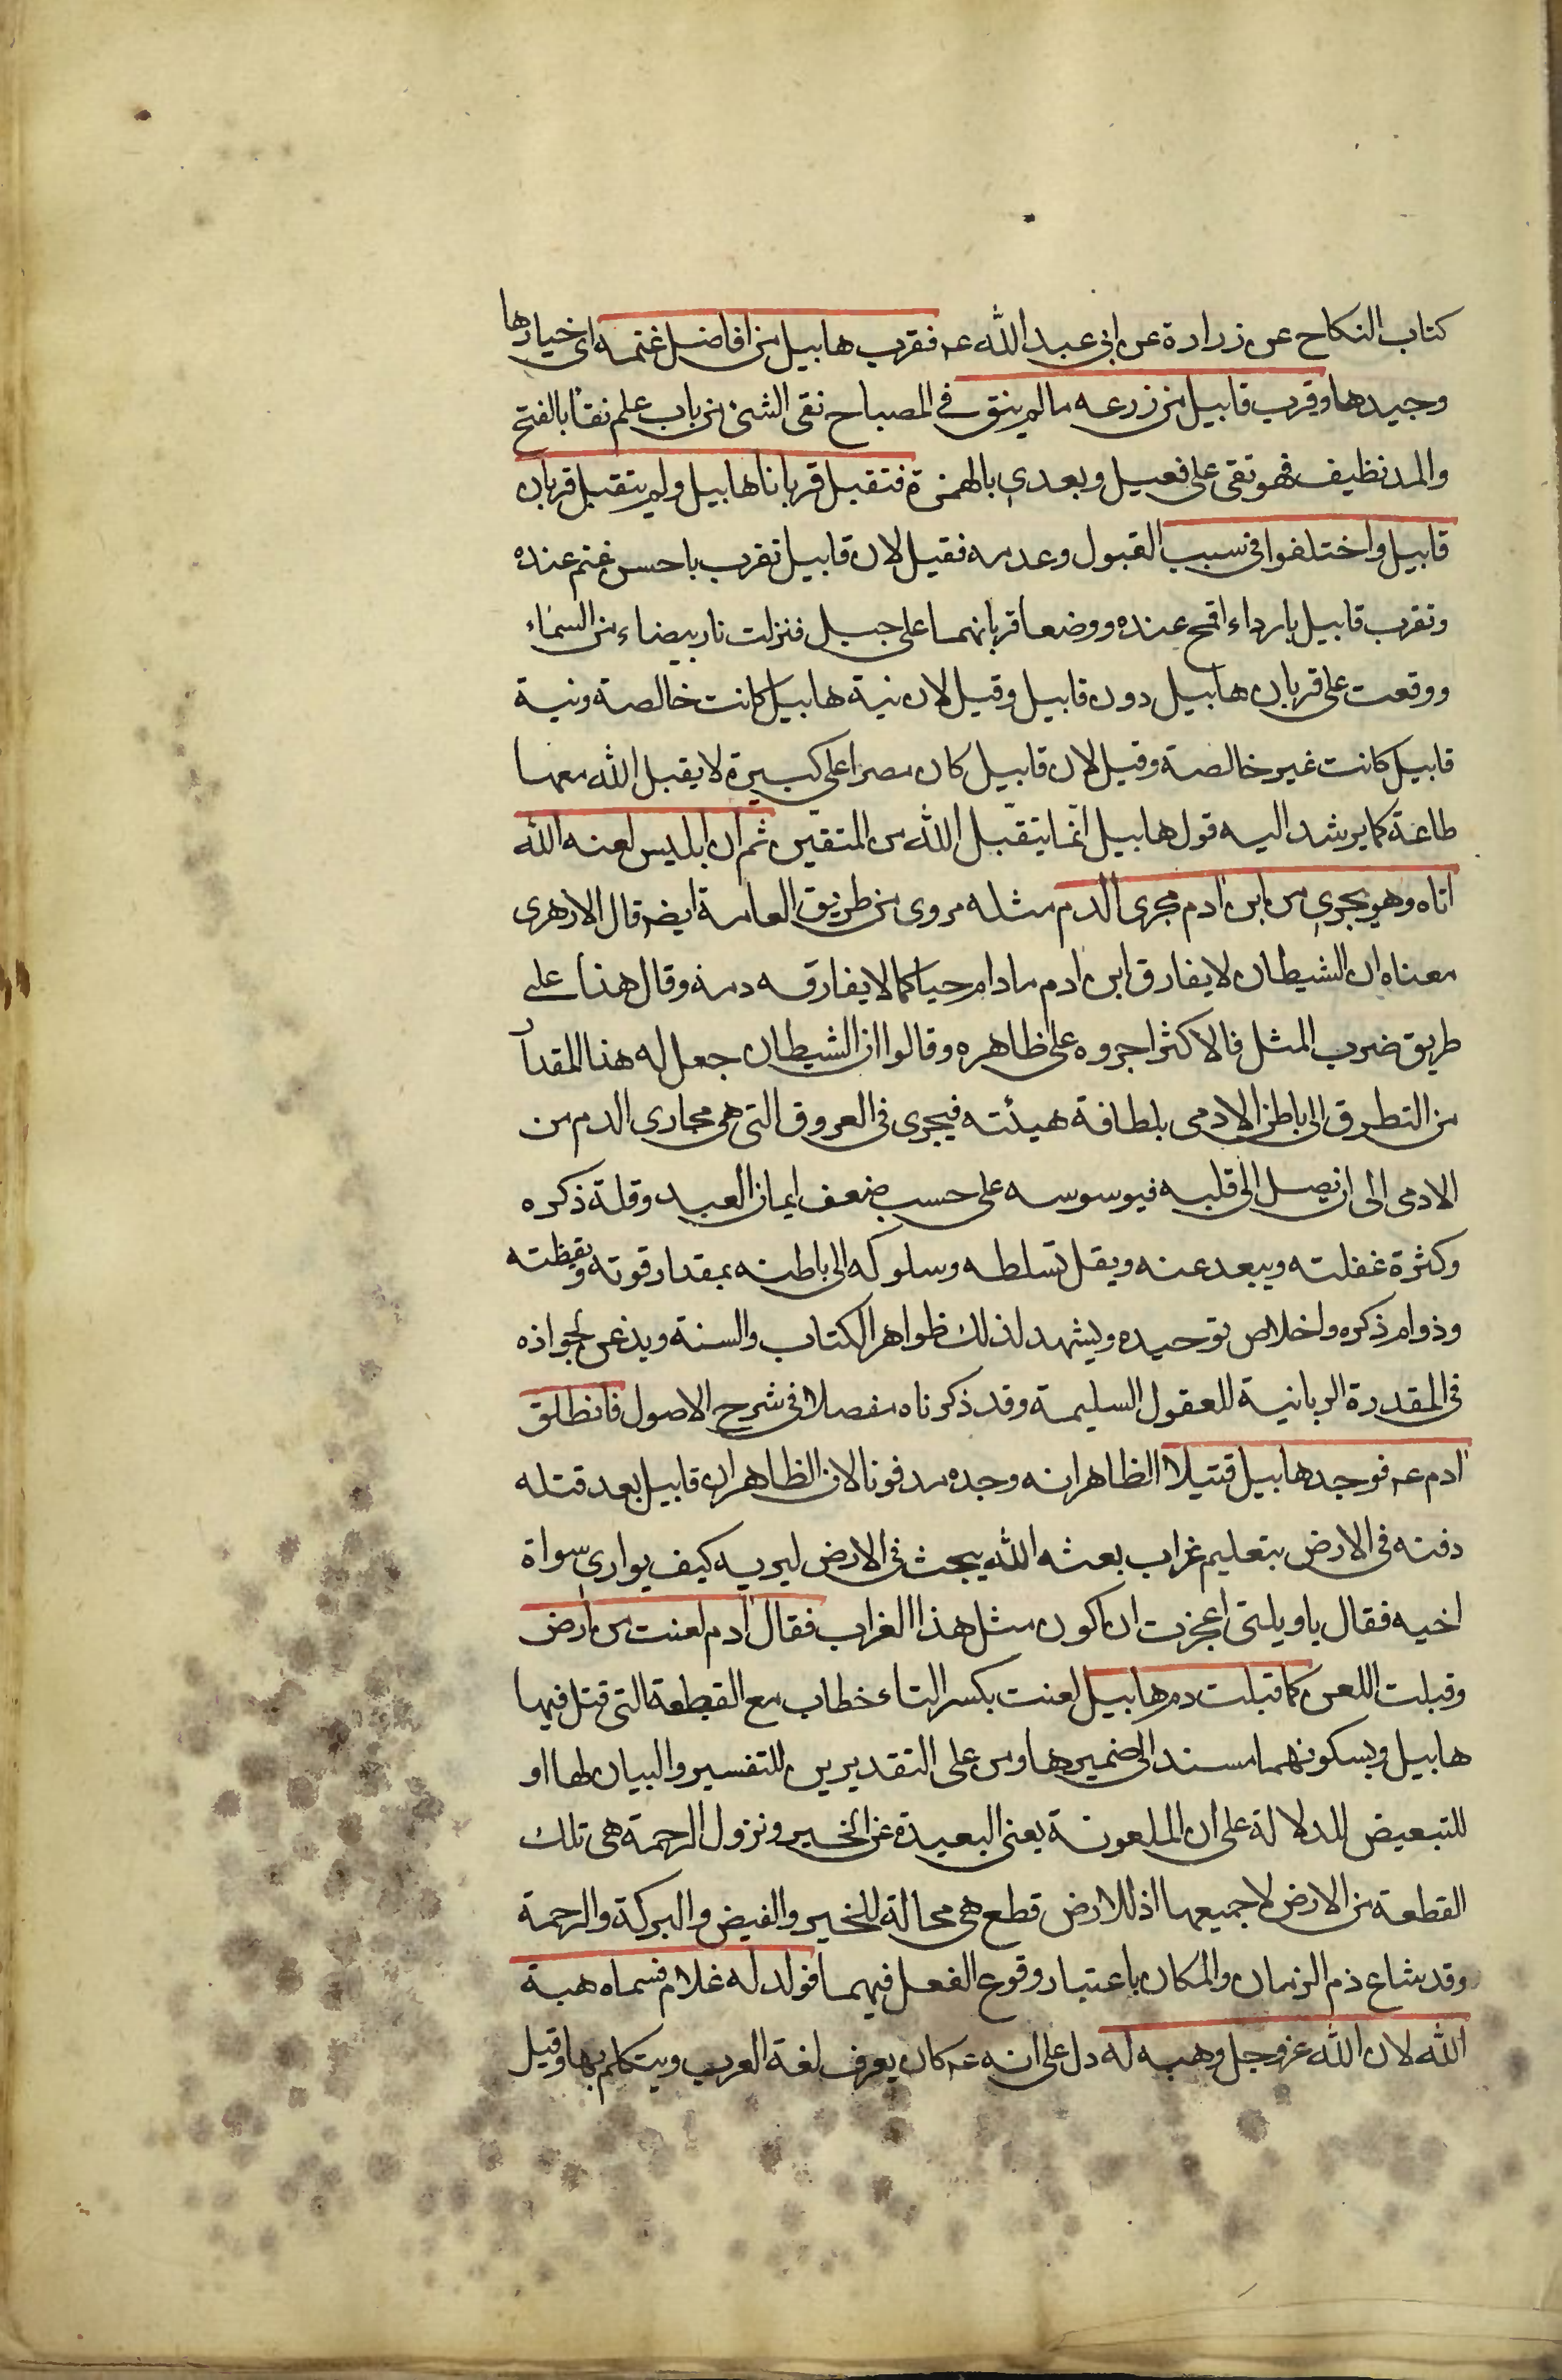 كتاب النكاح عن زرارة عن ابى عبد الله عـ فقرب هابيل من افاضل غنمه اى خيارها
وجيدها وقرب قابيل من زرعه مالم ينق في المصباح نقى الشئ من باب علم نقأ بالفتح
والمد نظيف فهو نقى على فعيل ويعدي بالهمزة فتقبل قربانا هابيل ولم يتقبل قربان
قابيل واختلفوا فى سبب القبول وعدمه فقيل لان قابيل تقرب باحسن غنم عنده
وتقرب قابيل بارداء اقمح عنده ووضعا قربانهما على جبل فنزلت نار بيضاء من السماء
ووقعت على قربان هابيل دون قابيل وقيل لان نية هابيل كانت خالصة ونية
قابيل كانت غير خالصة وقيل لان قابيل كان مصرا على كبيرة لا يقبل الله معها
طاعة كما يرشد اليه قول هابيل انّما يتقبّل الله من المتقين ثم ان ابليس لعنه الله
اتاه وهو يجري من ابن ادم مجرى الدم مثله مروى من طريق العامة ايضـ قال الازهرى
معناه ان الشيطان لا يفارق ابن ادم مادام حيا كما لا يفارقه دمه وقال هذا على
طريق ضرب المثل فالاكثر اجروه على ظاهره وقالوا ان الشيطان جعل له هذا المقدار
من التطرق الى باطن الادمى بلطافة هيئته فيجرى فى العروق التى هى مجارى الدم من
الادمى الى ان يصل الى قلبه فيوسوسه على حسب ضعف ايمان العبد وقلة ذكره
وكثرة غفلته ويبعد عنه ويقل تسلطه وسلوكه الى باطنه بمقدار قوته ويقظته
وذوام ذكره واخلاص توحيده ويشهد لذلك ظواهر الكتاب والسنة ويذعن لجوازه
فى المقدرة الربانية للعقول السليمة وقد ذكرناه مفصلا فى شرح الاصول فانطلق
ادم عـ فوجد هابيل قتيلا الظاهر انه وجده مدفونا لان الظاهر ان قابيل بعد قتله
دفنه فى الارض بتعليم غراب بعثه الله يبحث فى الارض ليريه كيف يوارى سواة
اخيه فقال يا ويلتى اعجزت ان اكون مثل هذا الغراب فقال ادم لعنت من ارض
وقبلت اللعن كما قبلت دم هابيل لعنت بكسر التاء خطاب مع القطعة التى قتل فيها
هابيل وبسكونهما مسند الى ضميرها ومن على التقديرين للتفسير والبيان لها او
للتبعيض للدلالة على ان الملعونة يعنى البعيدة عن الخير ونزول الرحمة هى تلك
القطعة من الارض لا جميعها اذ للارض قطع هى محالة للخير والفيض والبركة والرحمة
وقد شاع ذم الزمان والمكان باعتبار وقوع الفعل فيهما فولد له غلام فسماه هبة
الله لان الله عزوجل وهبه له دل على انه عـ كان يعرف لغة العرب ويتكلم بها وقيل